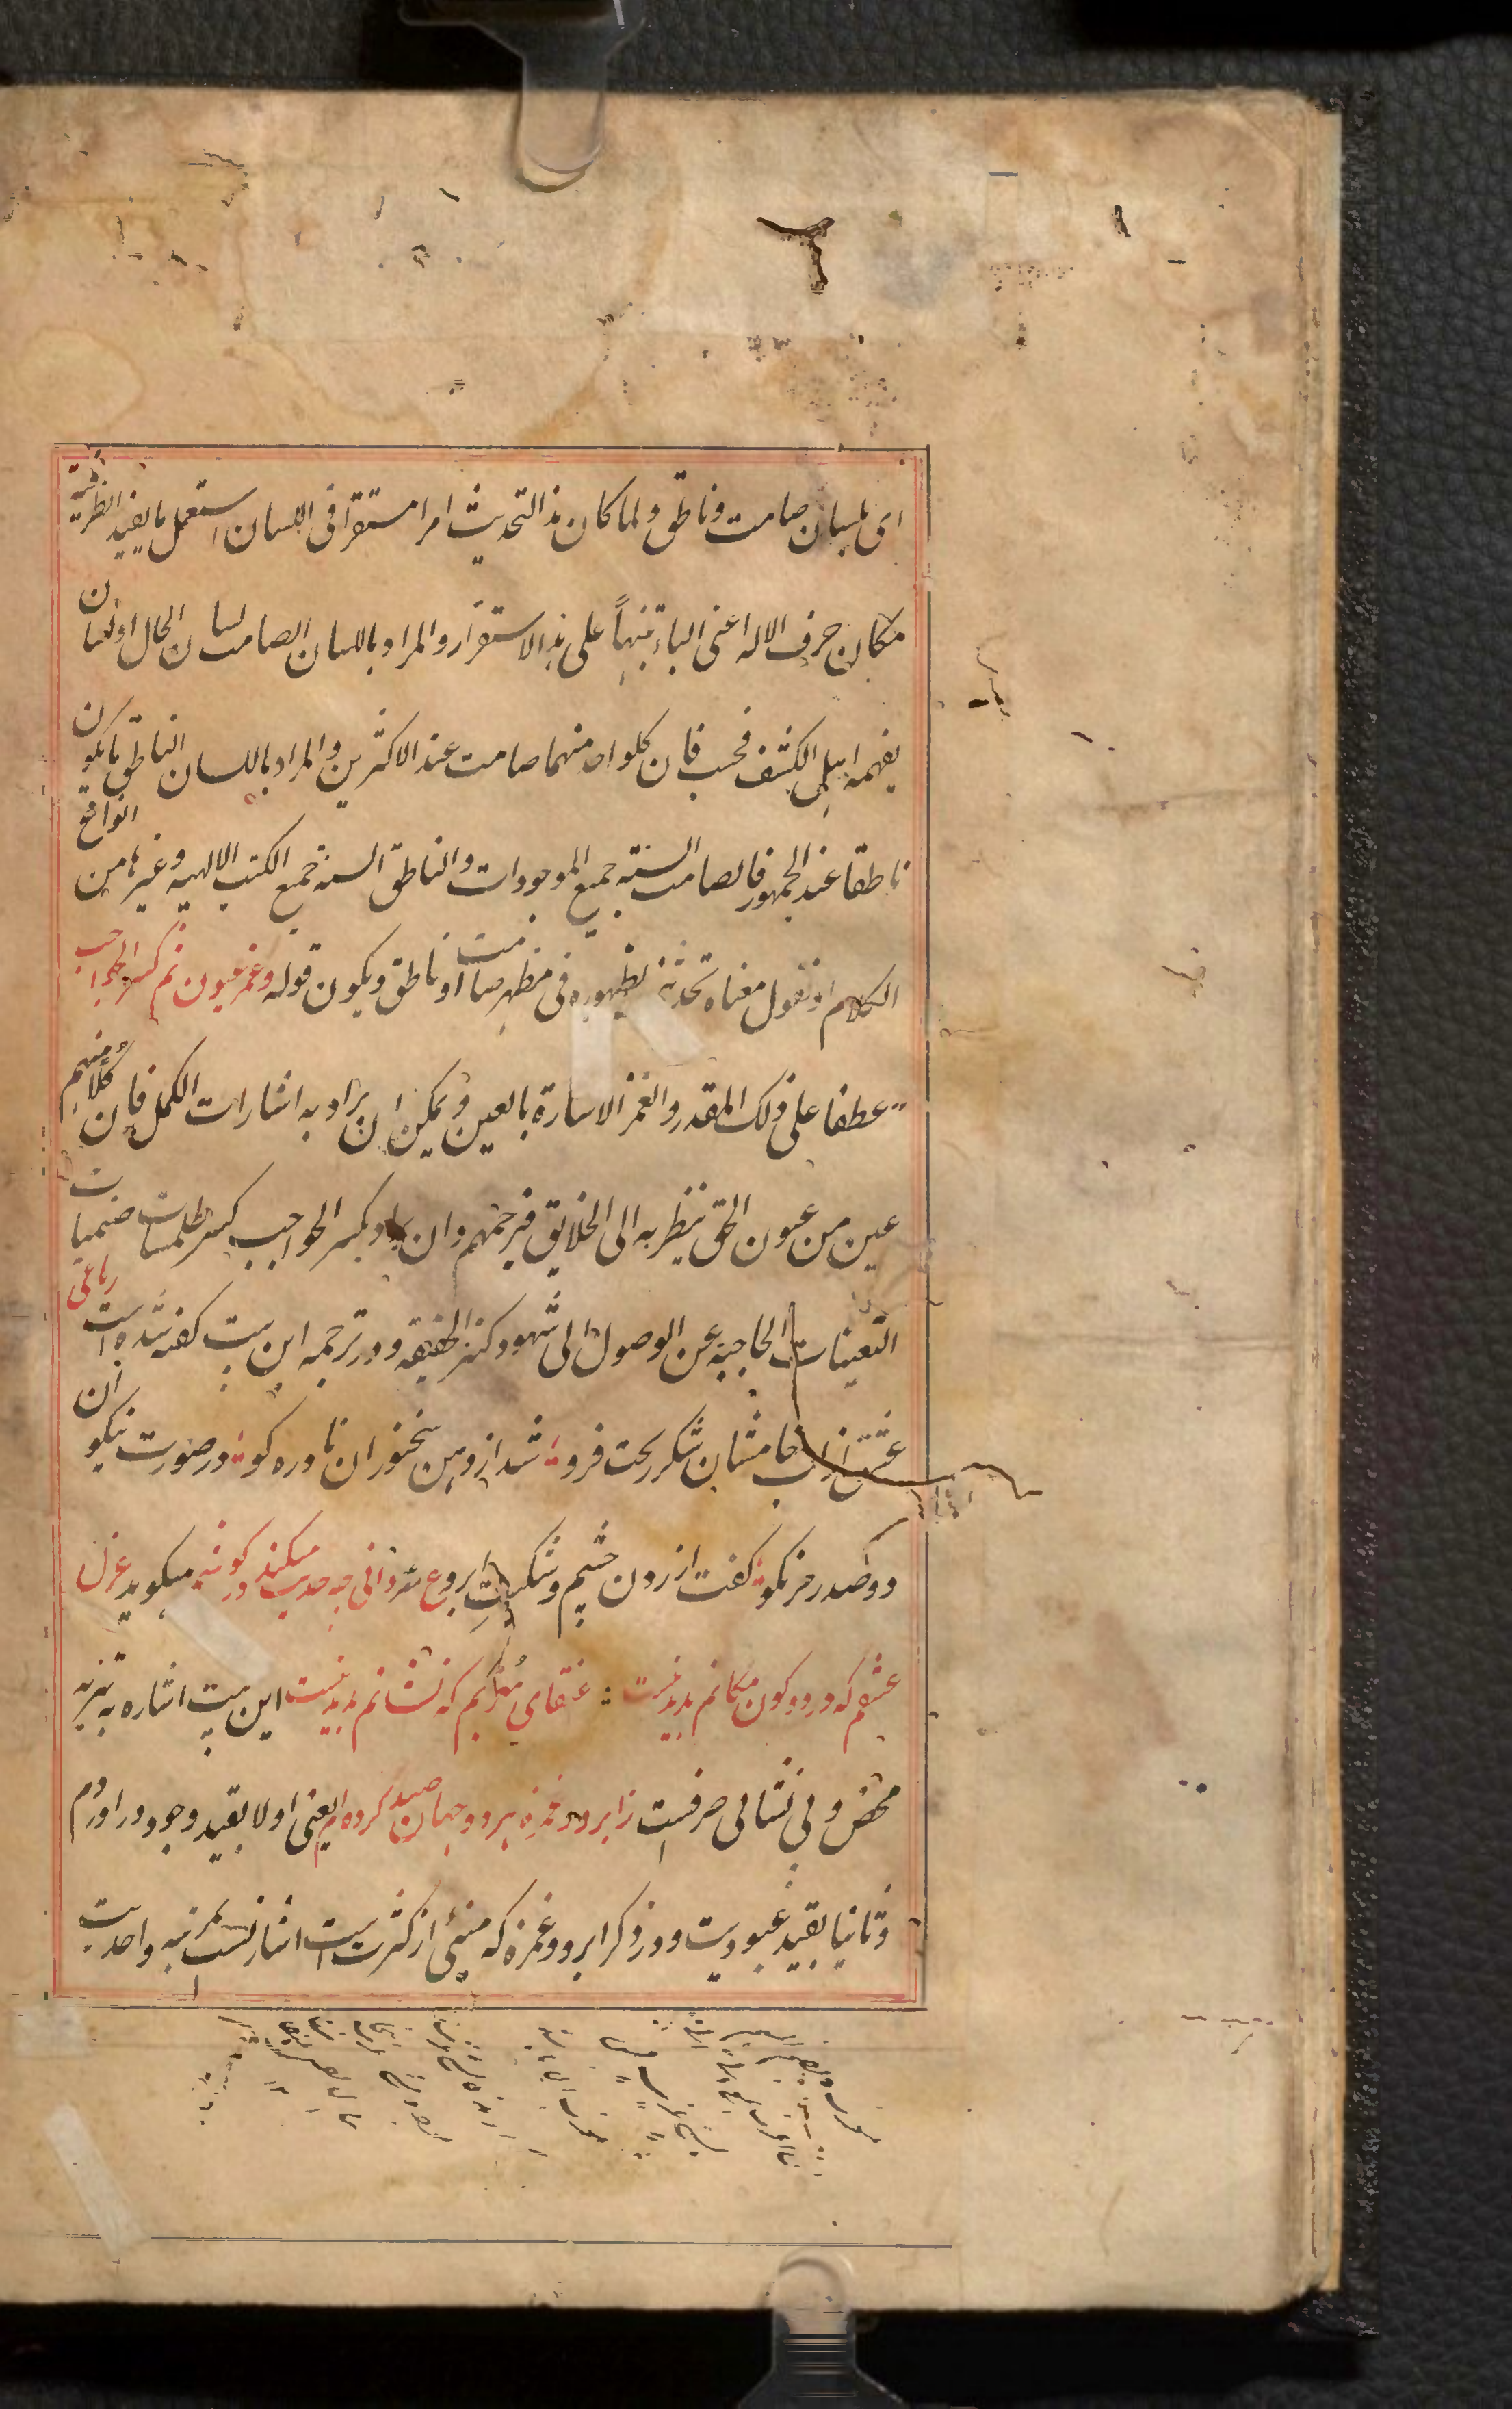 ای بلسان صامت وناطق ولما کان هذا التحدیث امرا مستقرا فی اللسان استعمل ما یفید الظرفیة
مکان حرف الاله اعنی الباء تنبیهاً علی هذا الاستقرار والمراد باللسان الصامت لسان الحال او لسان
یفهمه اهل الکشف فحسب فان کلواحد منهما صامت عند الاکثرین والمراد باللسان الناطق ما یکون
ناطقا عند الجمهور فالصامت السنة جمیع الموجودات والناطق السنة جمیع الکتب الالهیه وغیرها من انواع
الکلام او نقول معناه تحدثه بظهوره فی مظهر صامت او ناطق ویکون قوله وغمز عیون ثم کسر الحواجب
عطفا علی ذلک المقدر والغمز الاشارة بالعین ویمکن ان یراد به اشارات الکمل فان کلًا منهم
عین من عیون الحق ینظر به الی الخلایق فیرحمهم وان یراد بکسر الحواجب کسر طلسمات صنمیات
التعینات الحاجبة عن الوصول الی شهود کنز الحقیقه ودر ترجمه این بیت کفته شده است رباعی
عشق از لب خامشان شکر ریخت فرو شد از دهن سخنوران نادره کو در صورت نیکوان
دو صد رمز نکو کفت از زدن چشم و شکست ابرو ع میدانی چه حدیث میکند در کوشم میکوید غزل
عشقم که در دو کون مکانم بدید نیست : عنقای مغربم که نشانم بدید نیست این بیت اشاره به تنزیه
محض و بی نشانی صرفست زابرو و غمزه هر دو جهان صید کرده ام یعنی اولا بقید وجود در اوردم
وثانیا بقید عبودیت ودر ذکر ابرو و غمزه که منبئی از کثرت است اشارتست بمرتبه واحدیت